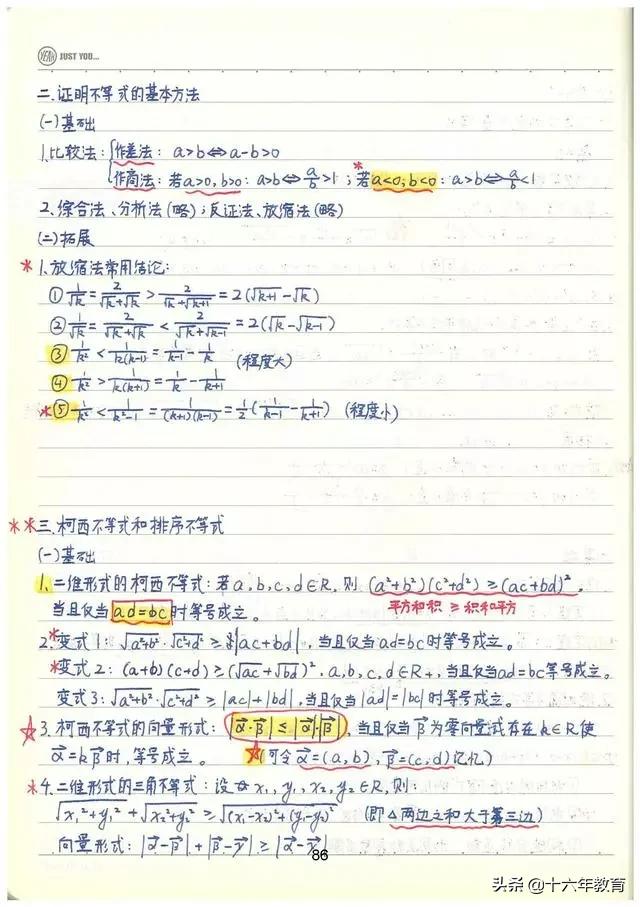 YEAH JUST YOU...
二.证明不等式的基本方法
(一)基础
1.比较法:{作差法: a>b⇔a-b>0
作商法:若a>0,b>0: a>b⇔a/b>1;*若a<0,b<0: a>b⇔a/b<1
2.综合法、分析法(略);反证法、放缩法(略)
(二)拓展
*1.放缩法常用结论:
①1/√k=2/(√k+√k)>2/(√k+√(k+1))=2(√(k+1)-√k)
②1/√k=2/(√k+√k)<2/(√k+√(k-1))=2(√k-√(k-1))
③1/k²<1/(k(k-1))=1/(k-1)-1/k (程度大)
④1/k²>1/(k(k+1))=1/k-1/(k+1)
*⑤1/k²<1/(k²-1)=1/((k+1)(k-1))=1/2(1/(k-1)-1/(k+1)) (程度小)
**三.柯西不等式和排序不等式
(一)基础
1.二维形式的柯西不等式:若a,b,c,d∈R,则(a²+b²)(c²+d²)≥(ac+bd)²,
当且仅当ad=bc时等号成立。 平方和积≥积和平方
2.*变式1:√(a²+b²)·√(c²+d²)≥|ac+bd|,当且仅当ad=bc时等号成立。
*变式2:(a+b)(c+d)≥(√ac+√bd)².a,b,c,d∈R+,当且仅当ad=bc等号成立。
变式3:√(a²+b²)·√(c²+d²)≥|ac|+|bd|,当且仅当|ad|=|bc|时等号成立。
☆3.柯西不等式的向量形式:|α·β|≤|α|·|β|,当且仅当β为零向量或存在k∈R,使
α=kβ时,等号成立。 ☆(可令α=(a,b),β=(c,d)记忆)
*4.二维形式的三角不等式:设x₁,y₁,x₂,y₂∈R,则:
√(x₁²+y₁²)+√(x₂²+y₂²)≥√((x₁-x₂)²+(y₁-y₂)²) (即△两边之和大于第三边)
向量形式:|α-β|+|β-γ|≥|α-γ|
86
头条@十六年教育